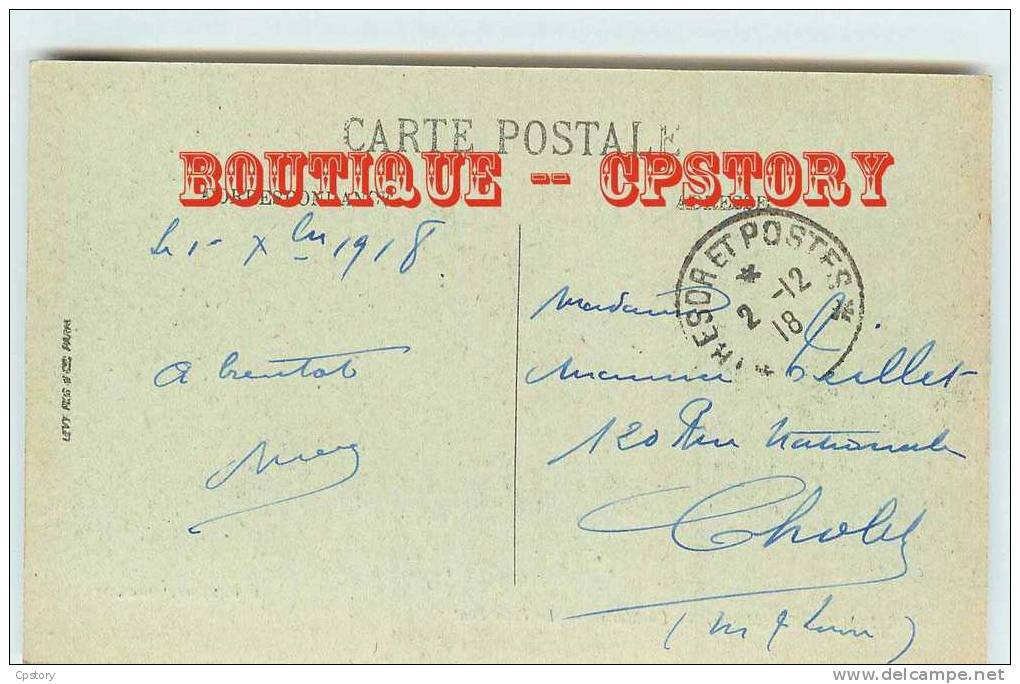 CARTE POSTALE
BOUTIQUE -- CPSTORY
CORRESPONDANCE
ADRESSE
Le 1- Xbre 1918
TRESOR ET POSTES
2 -12
18
A bientot
Madame
Maurice Teillet
120 Rue Nationale
Cholet
(M & Loire)
LEVY FILS & CIE PARIS
Cpstory
www.delcampe.net